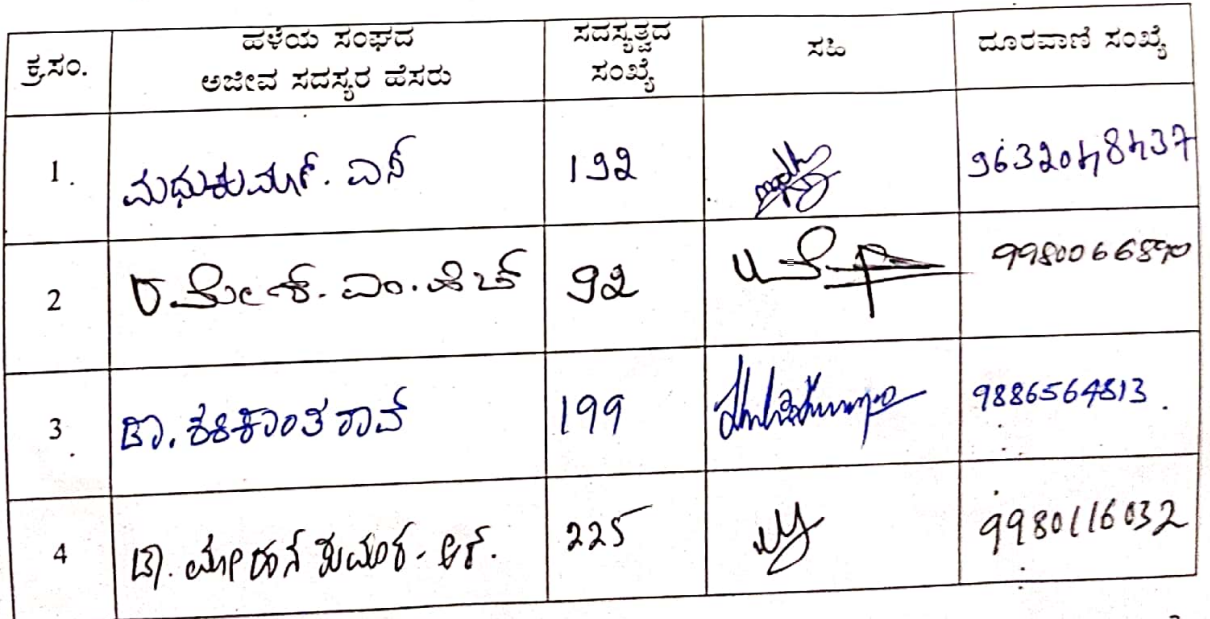 ಕ್ರ.ಸಂ. ಹಳೆಯ ಸಂಘದ ಅಜೀವ ಸದಸ್ಯರ ಹೆಸರು ಸದಸ್ಯತ್ವದ ಸಂಖ್ಯೆ ಸಹಿ ದೂರವಾಣಿ ಸಂಖ್ಯೆ
1. ಮಧುಕುಮಾರ್. ಎನ್ 192 9632048437
2 ರಮೇಶ್. ಎಂ. ಹೆಚ್ 92 9980066870
3 ಡಾ. ಶಶಿಕಾಂತ ರಾವ್ 199 9886564813.
4 ಡಾ. ಮೋಹನ ಕುಮಾರ. ಆರ್. 225 9980116032